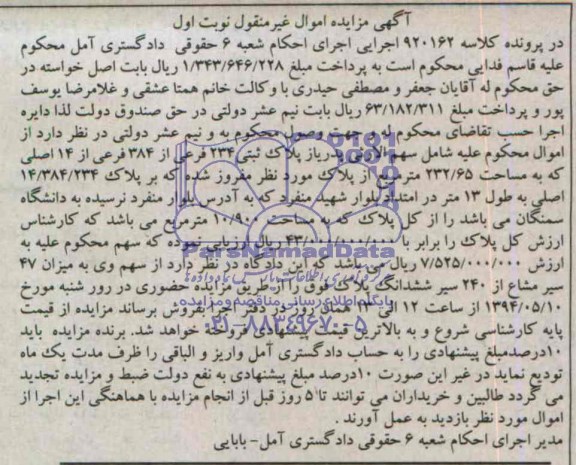 آگهی مزایده اموال غیرمنقول نوبت اول
در پرونده کلاسه ۹۲۰۱۶۲ اجرایی اجرای احکام شعبه ۶ حقوقی دادگستری آمل محکوم
علیه قاسم فدایی محکوم است به پرداخت مبلغ ۱/۳۴۳/۶۴۶/۲۲۸ ریال بابت اصل خواسته در
حق محکوم له آقایان جعفر و مصطفی حیدری با وکالت خانم همتا عشقی و غلامرضا یوسف
پور و پرداخت مبلغ ۶۳/۱۸۲/۳۱۱ ریال بابت نیم عشر دولتی در حق صندوق دولت لذا دایره
اجرا حسب تقاضای محکوم له و جهت وصول محکوم به و نیم عشر دولتی در نظر دارد از
اموال محکوم علیه شامل سهم الارث پدر از پلاک ثبتی ۲۳۴ فرعی از ۳۸۴ فرعی از ۱۴ اصلی
که به مساحت ۲۳۲/۶۵ مترمربع از پلاک مورد نظر مفروز شده که بر پلاک ۱۴/۳۸۴/۲۳۴
اصلی به طول ۱۳ متر در امتداد بلوار شهید منفرد که به آدرس بلوار منفرد نرسیده به دانشگاه
سمنگان می باشد را از کل پلاک که به مساحت ۱۰/۹۰۰ مترمربع می باشد که کارشناس
ارزش کل پلاک را برابر با ۴۳/۰۰۰/۰۰۰/۰۰۰ ریال ارزیابی نموده که سهم محکوم علیه به
ارزش ۷/۵۲۵/۰۰۰/۰۰۰ ریال می باشد که این دادگاه در نظر دارد از سهم وی به میزان ۴۷
سیر مشاع از ۲۴۰ سیر ششدانگ پلاک فوق را از طریق مزایده حضوری در روز شنبه مورخ
۱۳۹۴/۰۵/۱۰ از ساعت ۱۲ الی ۱۳ همان روز در دفتر اجرا بفروش برساند مزایده از قیمت
پایه کارشناسی شروع و به بالاترین قیمت پیشنهادی فروخته خواهد شد. برنده مزایده باید
۱۰درصدمبلغ پیشنهادی را به حساب دادگستری آمل واریز و الباقی را ظرف مدت یک ماه
تودیع نماید در غیر این صورت ۱۰درصد مبلغ پیشنهادی به نفع دولت ضبط و مزایده تجدید
می گردد طالبین و خریداران می توانند تا ۵ روز قبل از انجام مزایده با هماهنگی این اجرا از
اموال مورد نظر بازدید به عمل آورند .
مدیر اجرای احکام شعبه ۶ حقوقی دادگستری آمل- بابایی
ParsNamadData
پایگاه اطلاع رسانی مناقصه و مزایده
۰۲۱-۸۸۳۴۹۶۷۰-۵